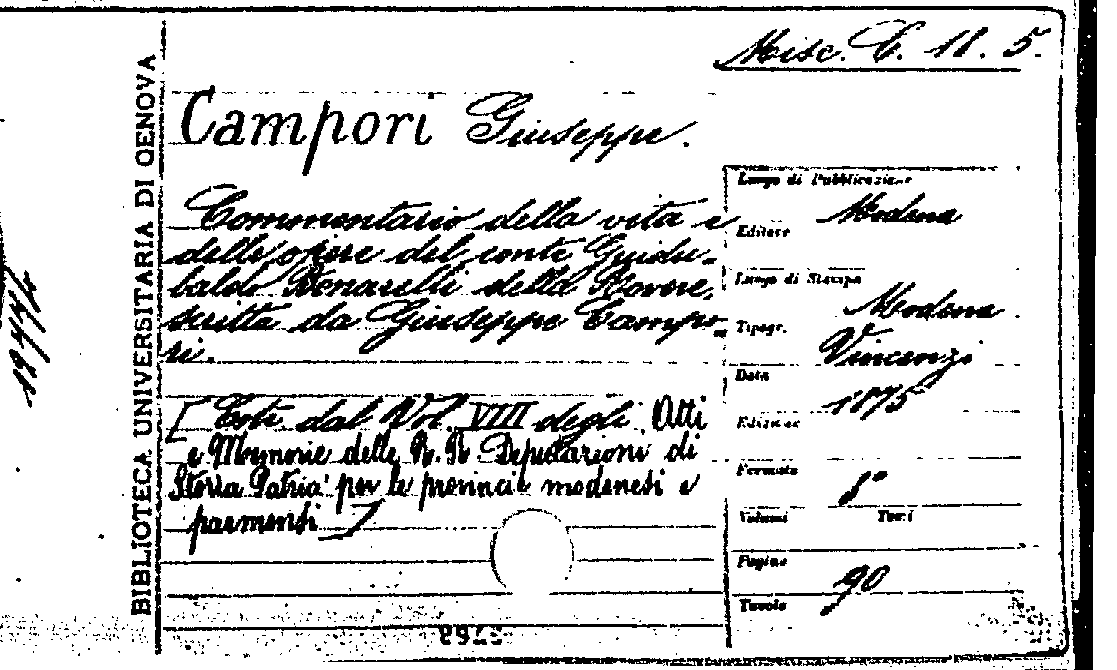 Misc. C. 11. 5.
BIBLIOTECA UNIVERSITARIA DI GENOVA
Campori Giuseppe.
Commentario della vita e
delle opere del conte Guidu-
baldo Bonarelli della Rovere,
scritta da Giuseppe Campo-
ri.
[Estr. dal Vol. VIII degli Atti
e Memorie delle R. R. Deputazioni di
Storia Patria per le provincie modenesi e
parmensi]
Luogo di Pubblicazione
Modena
Editore
Luogo di Stampa
Modena
Tipogr.
Vincenzi
Data
1875
Edizione
Formato
8°
Volumi Tomi
Pagine
90
Tavole